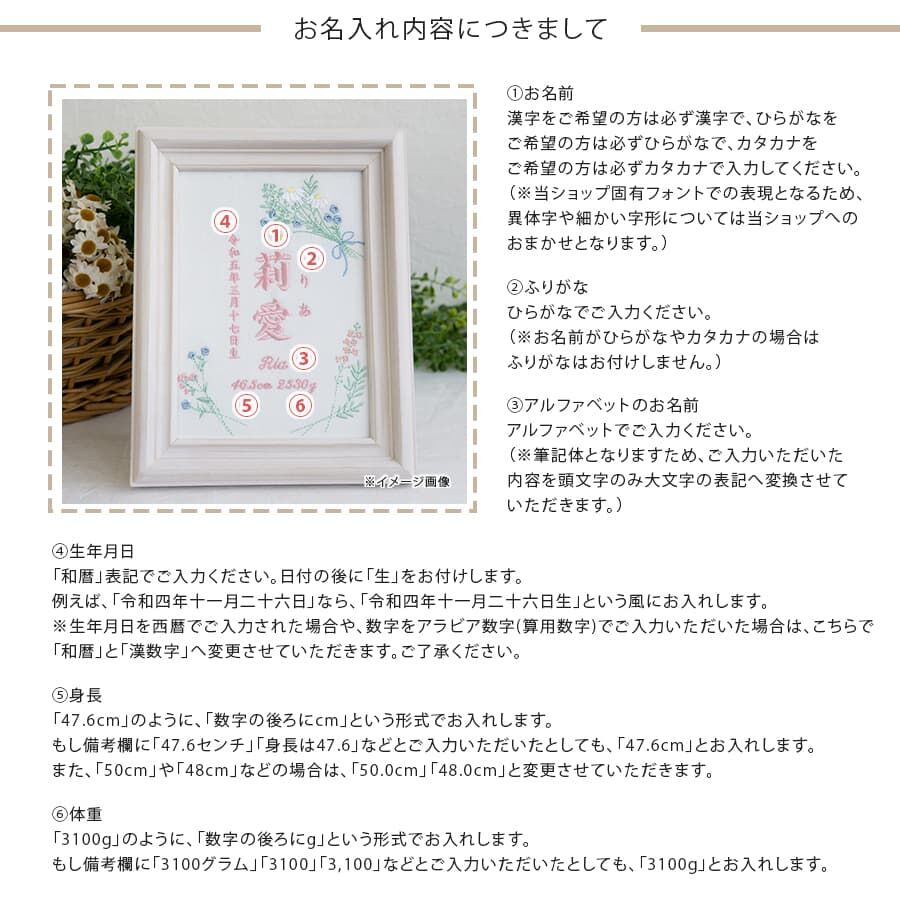 お名入れ内容につきまして
①お名前
漢字をご希望の方は必ず漢字で、ひらがなを
ご希望の方は必ずひらがなで、カタカナを
ご希望の方は必ずカタカナで入力してください。
（※当ショップ固有フォントでの表現となるため、
異体字や細かい字形については当ショップへの
おまかせとなります。）
②ふりがな
ひらがなでご入力ください。
（※お名前がひらがなやカタカナの場合は
ふりがなはお付けしません。）
③アルファベットのお名前
アルファベットでご入力ください。
（※筆記体となりますため、ご入力いただいた
内容を頭文字のみ大文字の表記へ変換させて
いただきます。）
①
莉愛
②
りあ
④
令和五年三月十七日生
Ria
③
46.5cm 2530g
⑤ ⑥
※イメージ画像
④生年月日
「和暦」表記でご入力ください。日付の後に「生」をお付けします。
例えば、「令和四年十一月二十六日」なら、「令和四年十一月二十六日生」という風にお入れします。
※生年月日を西暦でご入力された場合や、数字をアラビア数字(算用数字)でご入力いただいた場合は、こちらで
「和暦」と「漢数字」へ変更させていただきます。ご了承ください。
⑤身長
「47.6cm」のように、「数字の後ろにcm」という形式でお入れします。
もし備考欄に「47.6センチ」「身長は47.6」などとご入力いただいたとしても、「47.6cm」とお入れします。
また、「50cm」や「48cm」などの場合は、「50.0cm」「48.0cm」と変更させていただきます。
⑥体重
「3100g」のように、「数字の後ろにg」という形式でお入れします。
もし備考欄に「3100グラム」「3100」「3,100」などとご入力いただいたとしても、「3100g」とお入れします。